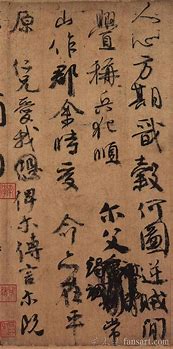 人心方期戩穀何圖逆賊閒
釁稱兵犯順尔父竭誠常
山作郡余時受命亦在平
原仁兄愛我俾尔傳言尔既
fansart.com